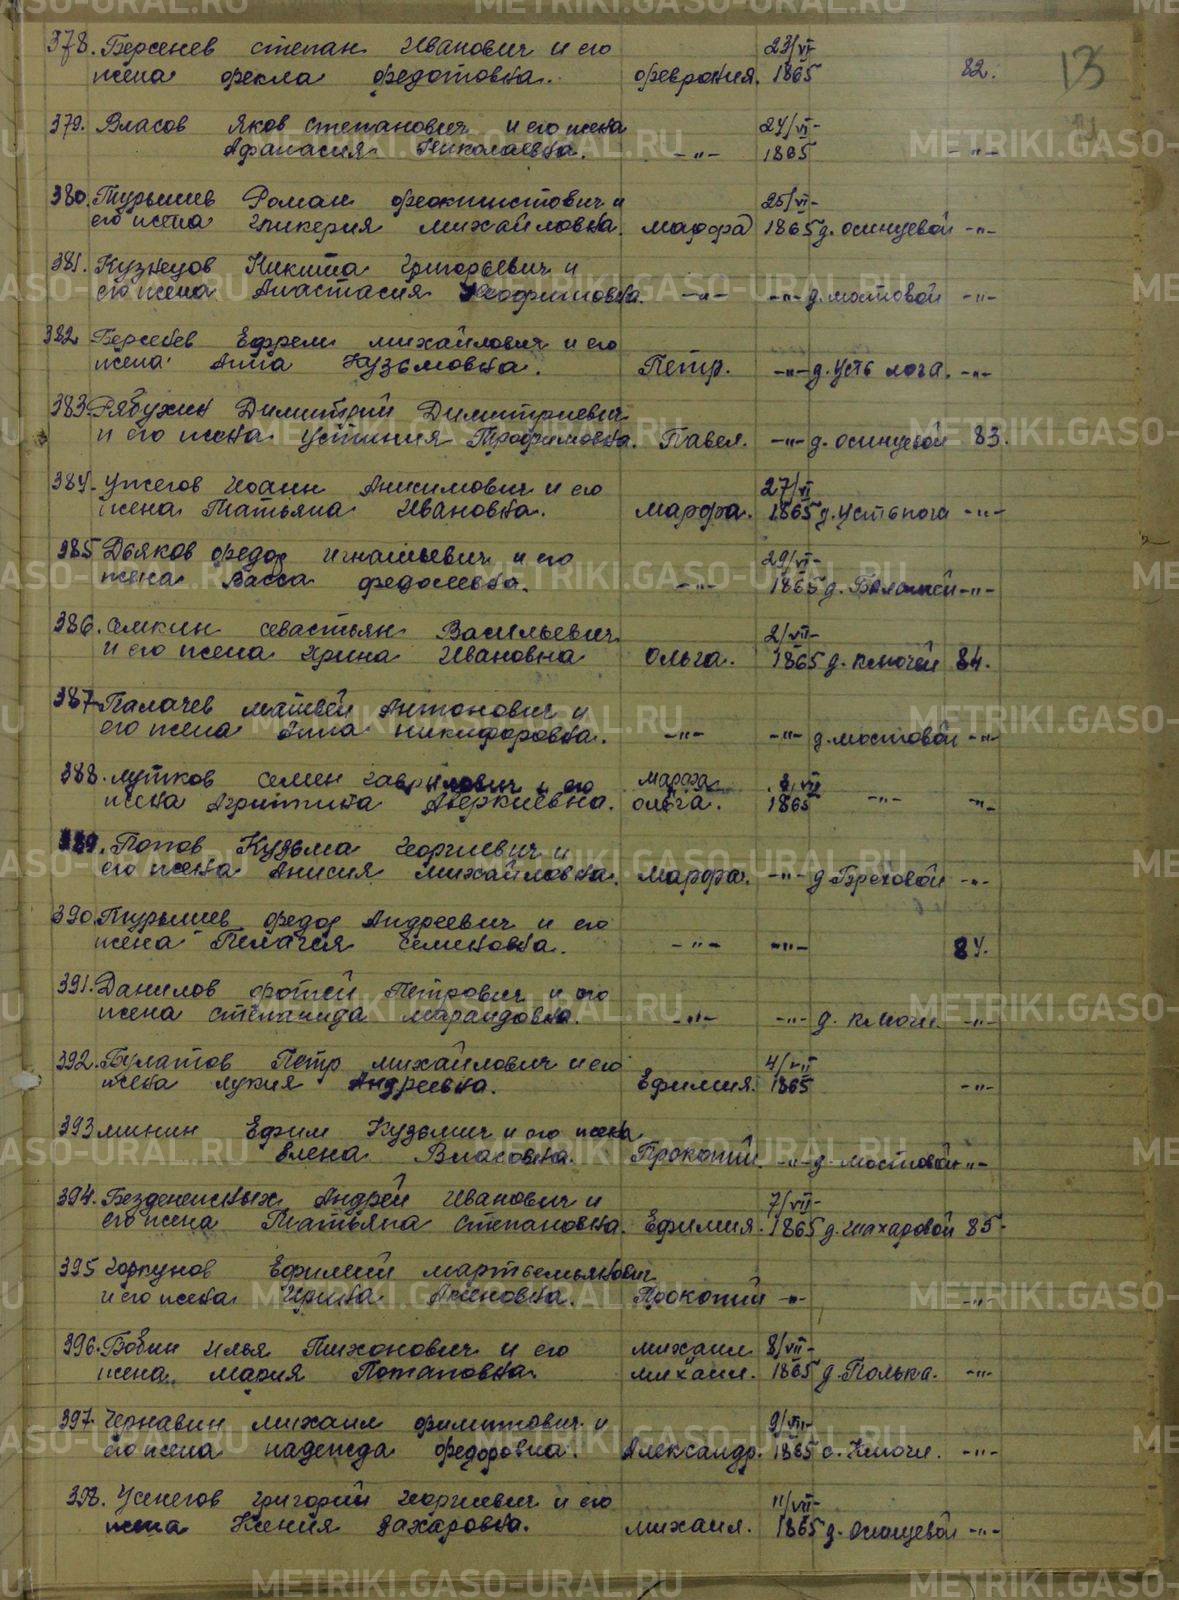 378. Берсенев степан Иванович и его 23/VI
жена фекла федотовна. феврония. 1865 82. 13
379. Власов Яков степанович и его жена 24/VI-
Афанасия Николаевна. -"- 1865 -"-
380. Турышев Роман феоктистович и 25/VI-
его жена Гликерия михайловна. марфа 1865 д. осинцевой -"-
381. Кузнецов Никита Григорьевич и
его жена Анастасия -"- -"- д. мостовой -"-
382. Берсенев Ефрем михайлович и его
жена Анна Кузьмовна. Петр. -"- д. усть лога. -"-
383. Рябухин Димитрий Димитриевич
и его жена Устиния Трофимовна. Павел. -"- д. осинцевой 83.
384. Ужегов Иоанн Анисимович и его 27/VI
жена Татьяна Ивановна. марфа. 1865 д. усть лога -"-
385 Дьяков федор игнатьевич и его 29/VI-
жена Васса федосеевна. -"- 1865 д. -"-
386. семкин севастьян Васильевич 2/VII-
и его жена Ирина Ивановна Ольга. 1865 д. ключей 84.
387 Палачев матвей Антонович и
его жена Анна никифоровна. -"- -"- д. мостовой -"-
388. лутков семен гаврилович и его марфа 3/VII
жена Агрипина Аверкиевна. ольга. 1865 -"- -"-
389. Попов Кузьма Георгиевич и
его жена Анисия михайловна. марфа. -"- д. Бреховой -"-
390. Турышев федор Андреевич и его
жена Пелагея семеновна. -"- -"- 84.
391. Данилов фотей Петрович и его
жена степанида марандовна. -"- -"- д. ключи -"-
392. Булатов Петр михайлович и его 4/VII
жена лукия Андреевна. Ефимия. 1865 -"-
393 минин Ефим Кузьмич и его жена
Елена Власовна. Прокопий. -"- д. мостовой -"-
394. Безденежных Андрей Иванович и 7/VII-
его жена Татьяна степановна. Ефимия. 1865 д. шахаровой 85-
395 Горкунов Ефимий мартемьянович
и его жена Ирина Прокопий -"- -"-
396. Бобин илья Тихонович и его михаил 8/VII-
жена. мария Потаповна. михаил. 1865 д. Полька. -"-
397. Чернавин михаил филиппович и 9/VII-
его жена надежда федоровна. Александр. 1865 с. Ключи. -"-
398. Ужегов григорий Георгиевич и его 11/VII-
жена Ксения захаровна. михаил. 1865 д. Осинцевой -"-
METRIKI.GASO-URAL.RU